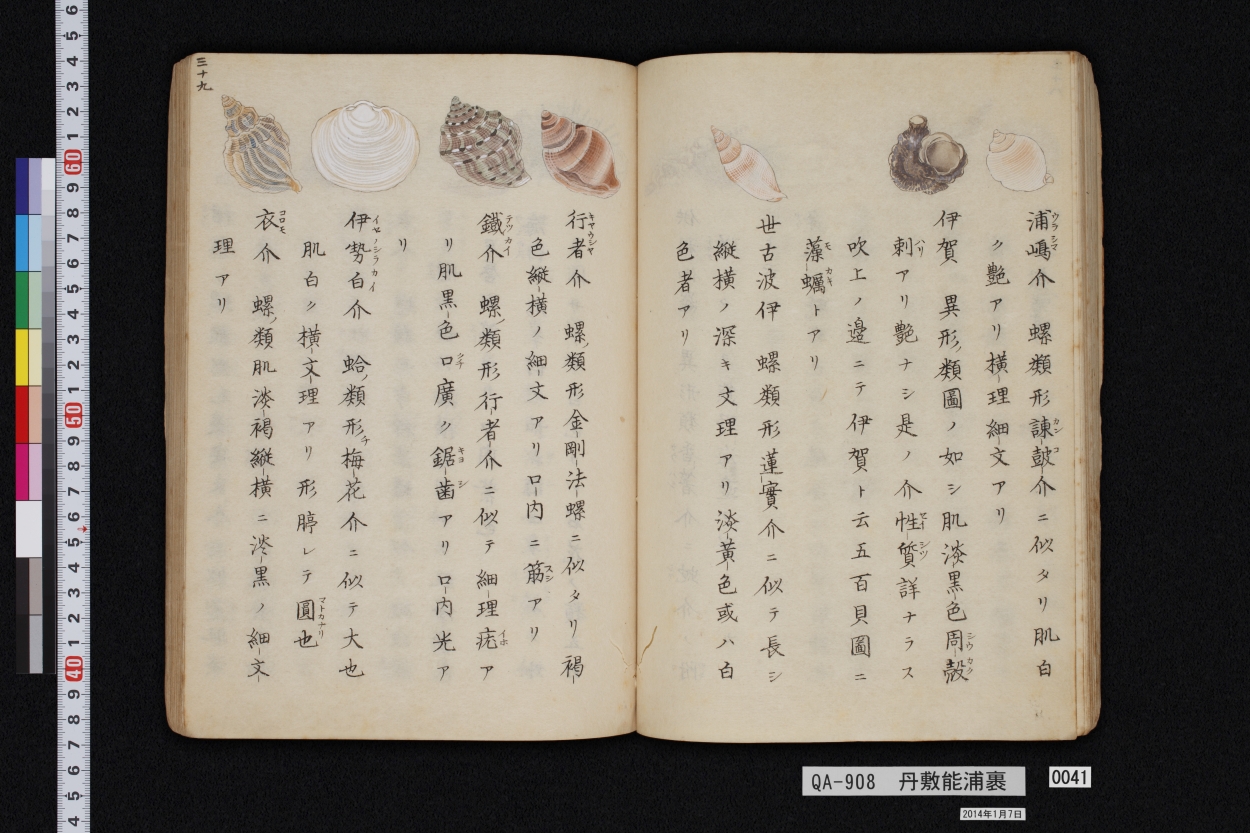 浦嶋介 螺類形諌皷介ニ似タリ肌白
ク艶アリ横理細文アリ
伊賀 異形類圖ノ如シ肌淡黒色周殼
刺アリ艶ナシ是ノ介性質詳ナラス
吹上ノ邊ニテ伊賀ト云五百貝圖ニ
藻蠣トアリ
世古波伊 螺類形蓮實介ニ似テ長シ
縦横ノ深キ文理アリ淡黄色或ハ白
色者アリ
三十九
行者介 螺類形金剛法螺ニ似タリ褐
色縦横ノ細文アリ口内ニ筋アリ
鐵介 螺類形行者介ニ似テ細理疣ア
リ肌黒色口廣ク鋸歯アリ口内光ア
リ
伊勢白介 蛤類形チ梅花介ニ似テ大也
肌白ク横文理アリ形脝レテ圓也
衣介 螺類肌淡褐縦横ニ淡黒ノ細文
理アリ
QA-908 丹敷能浦裹
0041
2014年1月7日